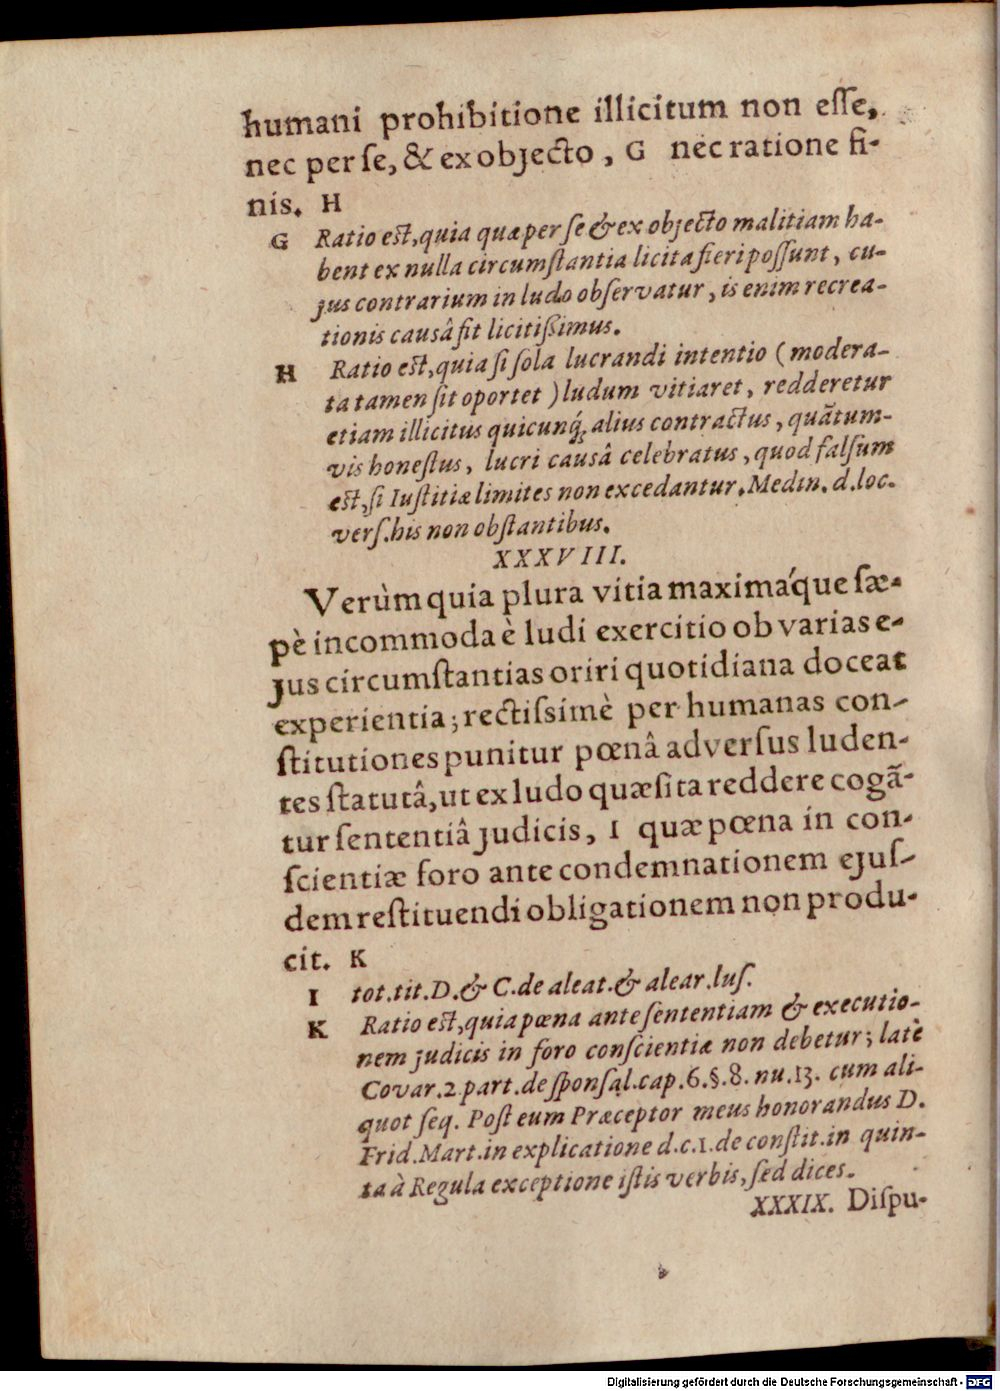 humani prohibitione illicitum non eſſe,
nec per ſe, & ex objecto, G nec ratione fi-
nis. H
G Ratio eſt, quia quæ per ſe & ex objecto malitiam ha-
bent ex nulla circumſtantia licita fieri poſſunt, cu-
jus contrarium in ludo obſervatur, is enim recrea-
tionis causâ fit licitiſsimus.
H Ratio eſt, quia ſi ſola lucrandi intentio (modera-
ta tamen ſit oportet) ludum vitiaret, redderetur
etiam illicitus quicunq́; alius contractus, quãtum-
vis honeſtus, lucri causâ celebratus, quod falſum
eſt, ſi Iuſtitiæ limites non excedantur. Medin. d. loc.
verſ. his non obſtantibus.
XXXVIII.
Verùm quia plura vitia maximáque ſæ-
pè incommoda è ludi exercitio ob varias e-
jus circumſtantias oriri quotidiana doceat
experientia; rectiſsimè per humanas con-
ſtitutiones punitur pœnâ adverſus luden-
tes ſtatutâ, ut ex ludo quæſita reddere cogã-
tur ſententiâ judicis, I quæ pœna in con-
ſcientiæ foro ante condemnationem ejuſ-
dem reſtituendi obligationem non produ-
cit. K
I tot. tit. D. & C. de aleat. & alear. luſ.
K Ratio eſt, quia pœna ante ſententiam & executio-
nem judicis in foro conſcientiæ non debetur; latè
Covar. 2. part. de ſponſal. cap. 6. §. 8. nu. 13. cum ali-
quot ſeq. Poſt eum Præceptor meus honorandus D.
Frid. Mart. in explicatione d. c. 1. de conſtit. in quin-
ta à Regula exceptione iſtis verbis, ſed dices.
XXXIX. Diſpu-
Digitalisierung gefördert durch die Deutsche Forschungsgemeinschaft - DFG